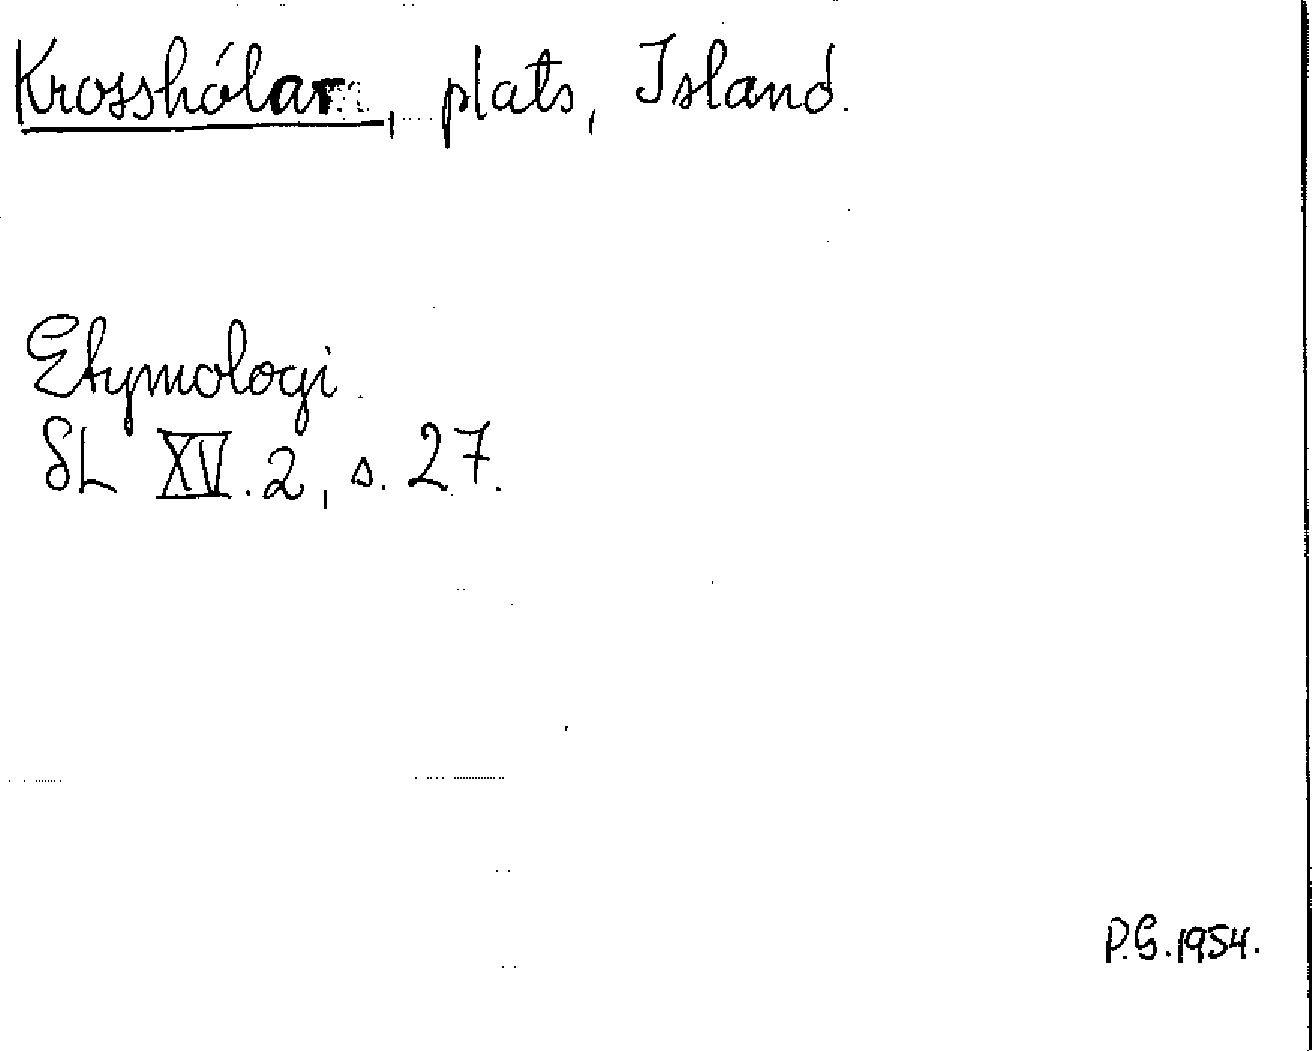 Krosshólar, plats, Island.
Etymologi.
SL XV.2, s. 27.
P.G. 1954.